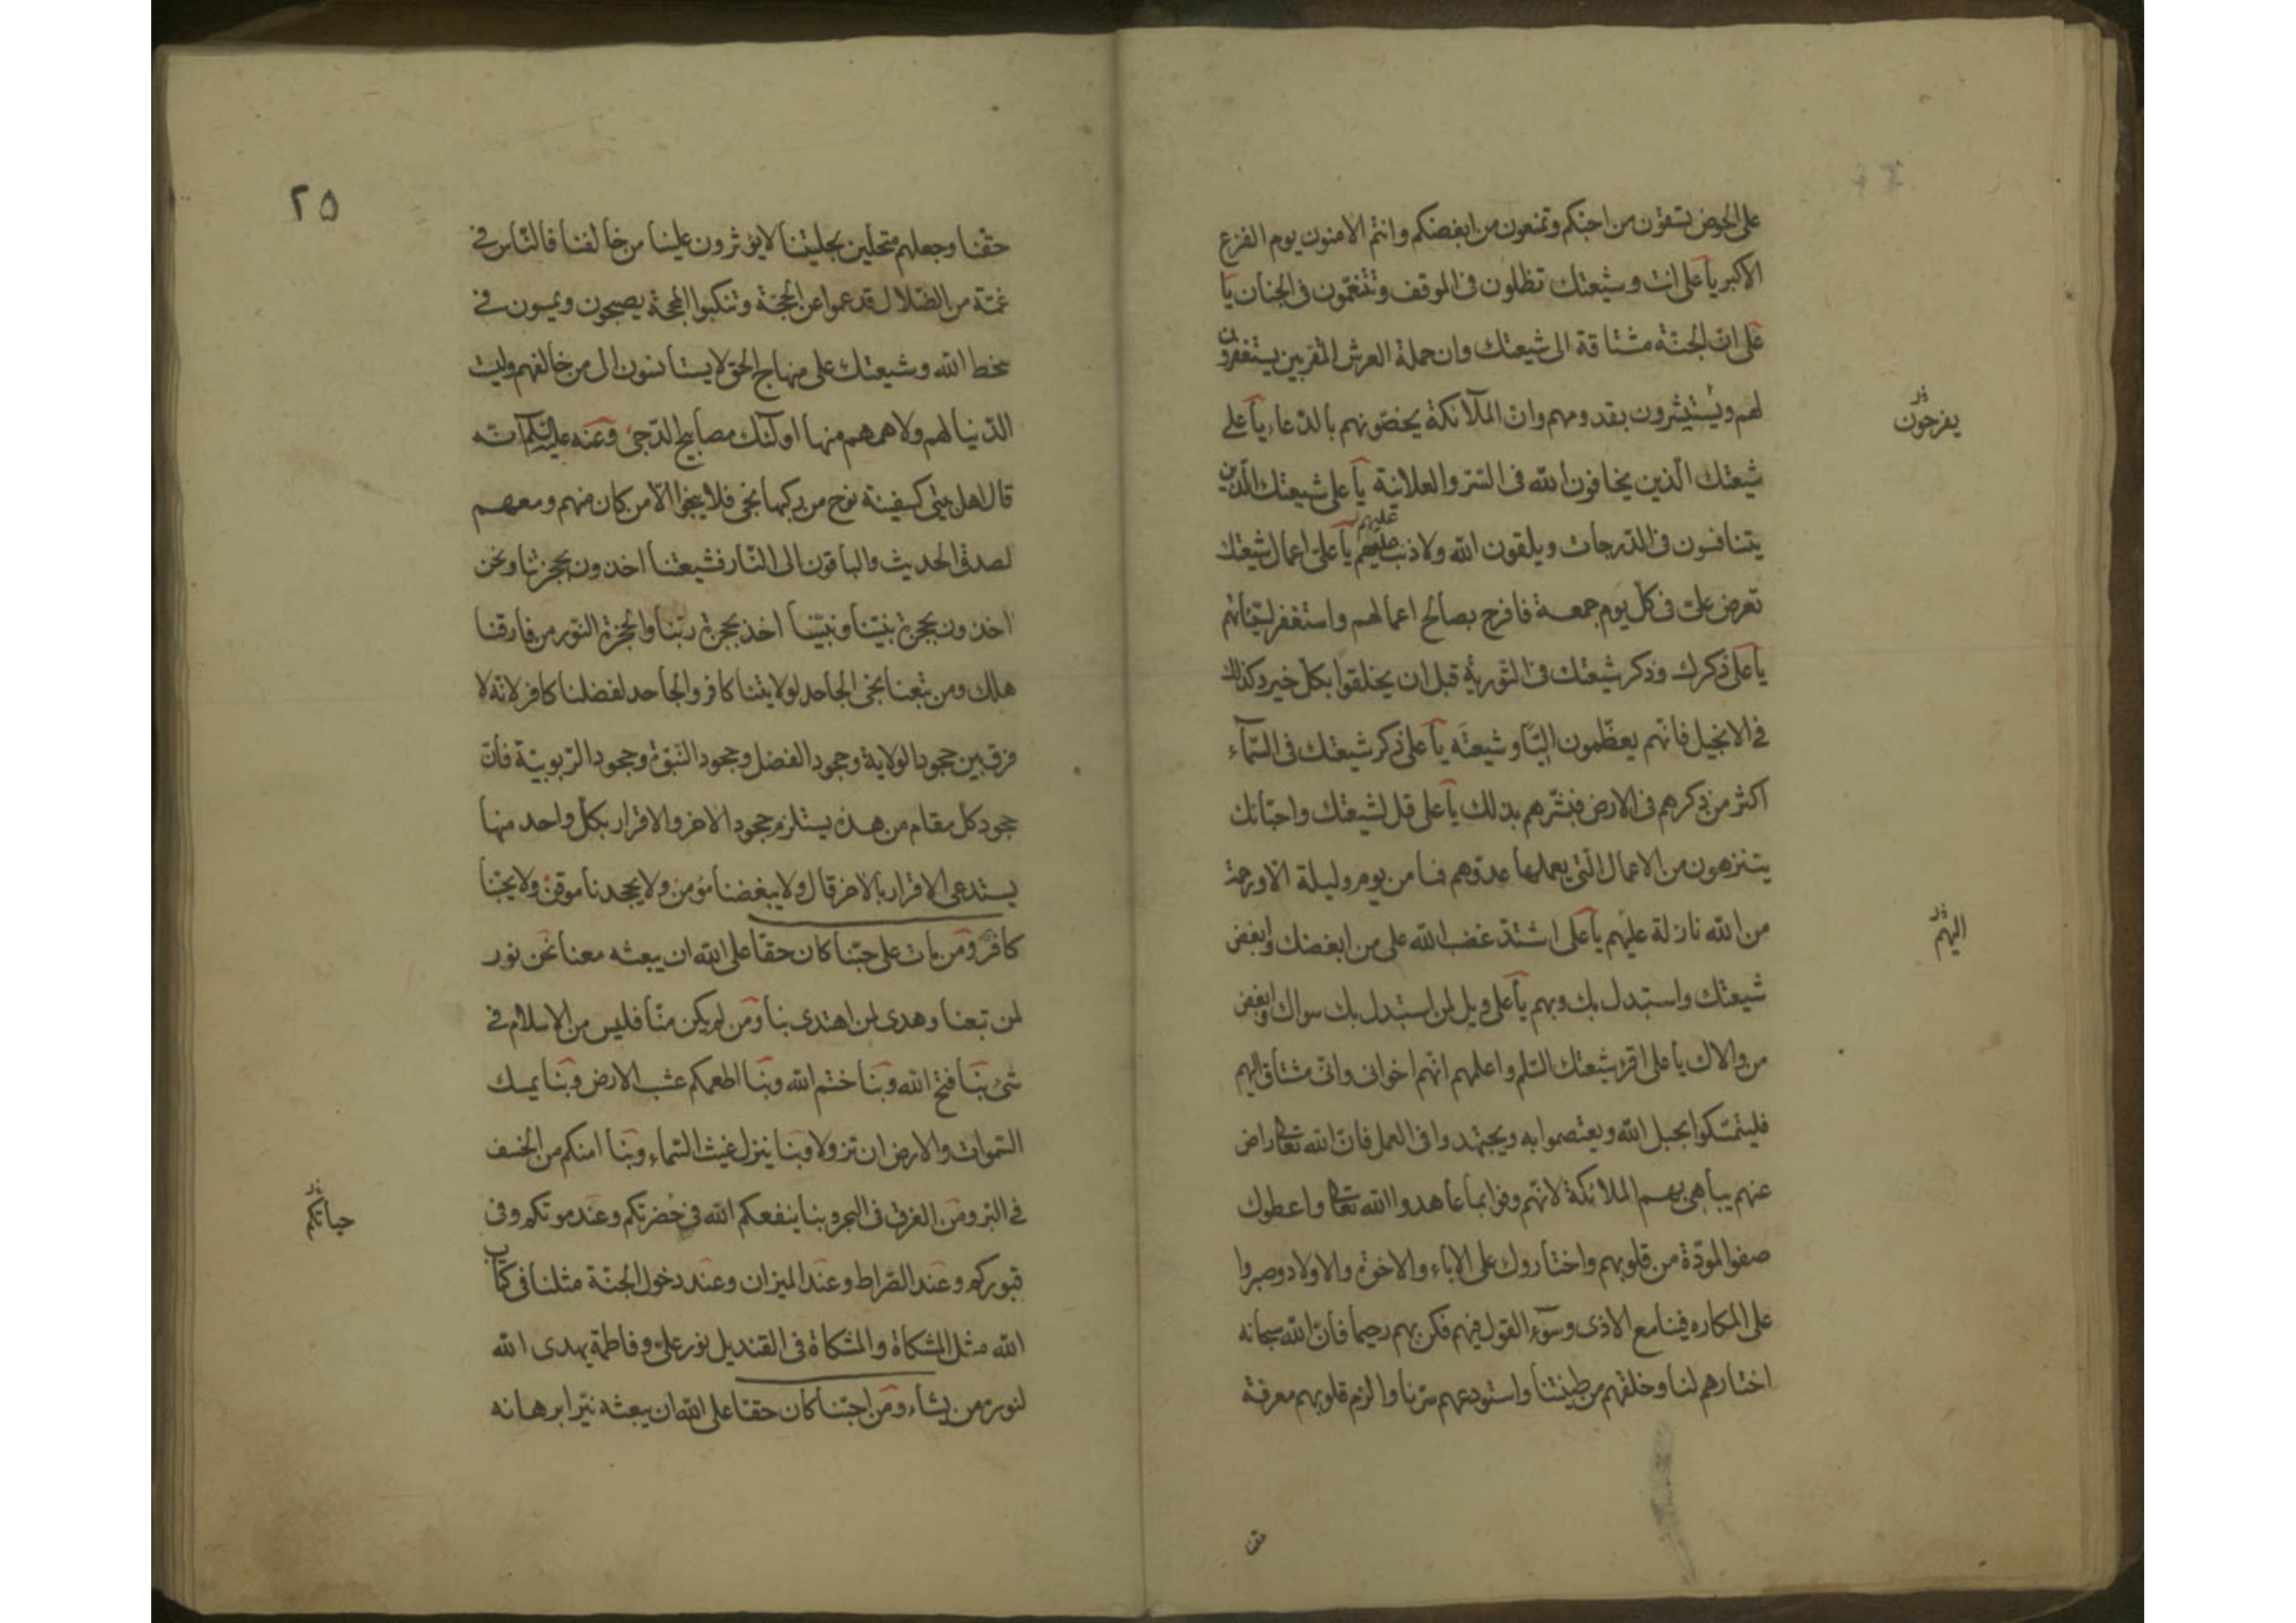 على الحوض تسقون من احبكم وتمنعون من ابغضكم وانتم الامنون يوم الفزع
الاكبر يا على انت وشيعتك تظلون فى الموقف وتنعمون فى الجنان يا
على ان الجنة مشتاقة الى شيعتك وان حملة العرش المقربين يستغفرون
لهم ويستبشرون بقدومهم وان الملآئكة يخصونهم بالدعاء يا على
يفرحون
شيعتك الذين يخافون الله فى السر والعلانية يا على شيعتك الذين
يتنافسون فى الدرجات ويلقون الله ولا ذنب عليهم يا على اعمال شيعتك
عليهم
تعرض على فى كل يوم جمعة فافرح بصالح اعمالهم واستغفر لسيئاتهم
يا على ذكرك وذكر شيعتك فى التورية قبل ان يخلقوا بكل خير وكذلك
فى الانجيل فانهم يعظمون اليا وشيعته يا على ذكر شيعتك فى السمآء
اكثر من ذكرهم فى الارض فبشرهم بذلك يا على قل لشيعتك واحبائك
يتنزهون من الاعمال التى يعملها عدوهم فما من يوم وليلة الا ورحمة
من الله نازلة عليهم يا على اشتد غضب الله على من ابغضك وابغض
اليهم
شيعتك واستبدل بك وبهم يا على ويل لمن استبدل بك سواك وابغض
من والاك يا على اقرئ شيعتك السلم واعلمهم انهم اخوانى وانى مشتاق اليهم
فليتمسكوا بحبل الله ويعتصموا به ويجتهدوا فى العمل فان الله تعالى راض
عنهم يباهى بهم الملائكة لانهم وفوا بما عاهدوا الله تعالى واعطوك
صفو المودة من قلوبهم واختاروك على الاباء والاخوة والاولاد وصبروا
على المكاره فينا مع الاذى وسوء القول فيهم فكن بهم رحيما فان الله سبحانه
اختارهم لنا وخلقهم من طينتنا واستودعهم سرنا والزم قلوبهم معرفة
حقنا
٢٥
حقنا وجعلهم متحلين بحليتنا لا يؤثرون علينا من خالفنا فالناس فى
غمة من الضلال قد عموا عن الحجة وتنكبوا المحجة يصبحون ويمسون فى
سخط الله وشيعتك على منهاج الحق لا يستأنسون الى من خالفهم وليت
الدنيا لهم ولا همهم منها اولئك مصابيح الدجى وعنه عليه السلم انه
قال اهل بيتى كسفينة نوح من ركبها نجى فلا ينجوا الا من كان منهم ومعهم
لصدق الحديث والباقون الى النار فشيعتنا اخذون بحجزتنا ونحن
اخذون بحجزة نبينا ونبينا اخذ بحجزة ربنا والحجزة النور من فارقنا
هلك ومن تبعنا نجى الجاحد لولايتنا كافر والجاحد لفضلنا كافر لانه لا
فرق بين جحود الولاية وجحود الفضل وجحود النبوة وجحود الربوبية فان
جحود كل مقام من هذه يستلزم جحود الاخر والاقرار بكل واحد منها
يستدعى الاقرار بالاخر قال ولا يبغضنا مؤمن ولا يجحدنا موقن ولا يحبنا
كافر ومن مات على حبنا كان حقا على الله ان يبعثه معنا نحن نور
لمن تبعنا وهدى لمن اهتدى بنا ومن لم يكن منا فليس من الاسلام فى
شئ بنا فتح الله وبنا ختم الله وبنا اطعمكم عشب الارض وبنا يمسك
السموات والارض ان تزولا وبنا ينزل غيث السماء وبنا امنكم من الخسف
فى البر ومن الغرق فى البحر وبنا ينفعكم الله فى حضرتكم وعند موتكم وفى
حياتكم
قبوركم وعند الصراط وعند الميزان وعند دخول الجنة مثلنا فى كتاب
الله مثل المشكاة والمشكاة فى القنديل نور على وفاطمة يهدى الله
لنوره من يشاء ومن احبنا كان حقا على الله ان يبعثه نيرا برهانه